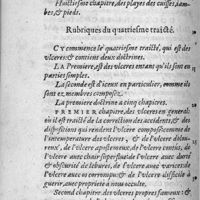 Huictiesme chapitre, des playes des cuisses, iam-
bes, & pieds.
Rubriques du quatriesme traicté.
CY commence le quatriesme traicté, qui est des
vlceres: & contient deux doctrines.
LA Premiere, est des vlceres entant qu'ils sont en
parties simples.
La seconde est d'iceux en particulier, comme ils
sont ez membres composez.
La premiere doctrine a cinq chapitres.
PREMIER chapitre, des vlceres en general:
où il est traicté de la correction des accidents, & des
dispositions qui rendent l'vlcere composé: comme de
l'intemperature des vlceres, de l'vlcere douloureux,
de l'vlcere auec aposteme, de l'vlcere contus, de
l'vlcere auec chair superflue, de l'vlcere auec dureté
& obscurité de leures, de l'vlcere auec varices,
l'vlcere auec os corrompu: & de l'vlcere difficile à
guerir, auec proprieté à nous occulte.
Second chapitre, des vlceres propres, sameux: &